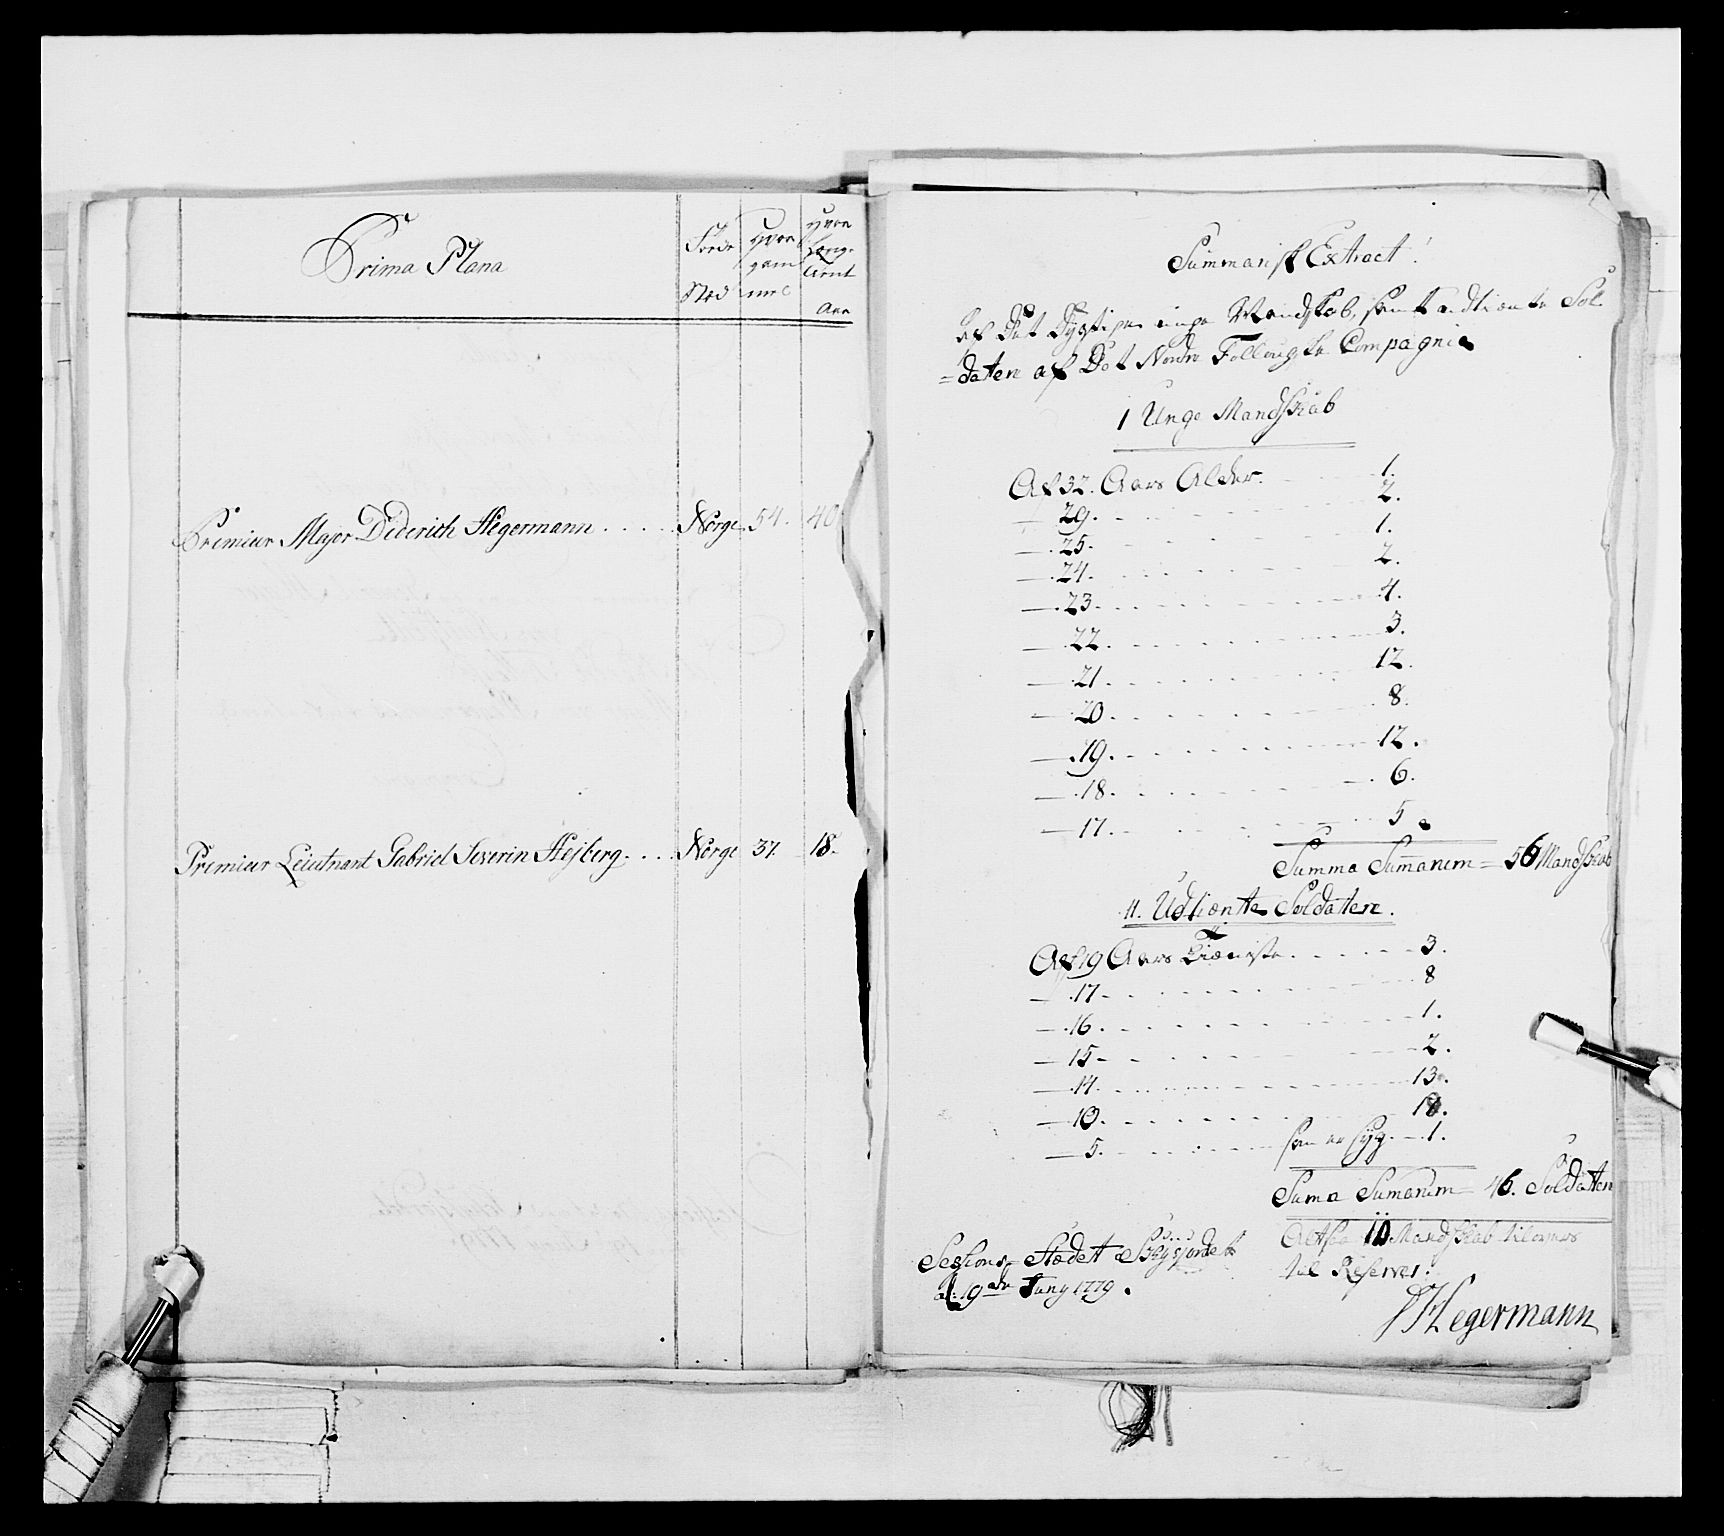 Prima Plana
Føde
Stæd
Hvor
gam
mel
Hvor
Længe
tient
Aar
Premier Major Diderich Hegermann . . . . . Norge 54. 40
Premier Lieutnant Gabriel Severin Hejberg. . . . Norge 37. 18.
Summarisk Extract!
af Det Dygtige unge Mandskab, samt udtiente Sol
=daten af Det Nordre Follougske Compagnie
1 Unge Mandskab
Af 32. Aars Alder. 1.
— 29. 2.
— 25. 1.
— 24. 2.
— 23. 4.
— 22. 3.
— 21. 12.
— 20. 8.
— 19. 12.
— 18. 6.
— 17. 5
Summa Sumarum = 56 Mandskab
11. Udtiænte Soldater.
Af 19 Aars Tiæniste 3.
— 17 8
— 16. 1.
— 15 2.
— 14. 13.
— 10. 18.
— 5. som er syg. 1.
Suma Sumarum 46. Soldater
Altsaa 10 Mandskab tilovers
til Reserver.
Sessions Stædet Skysjordet
d: 19de Juny 1779.
DHegermann